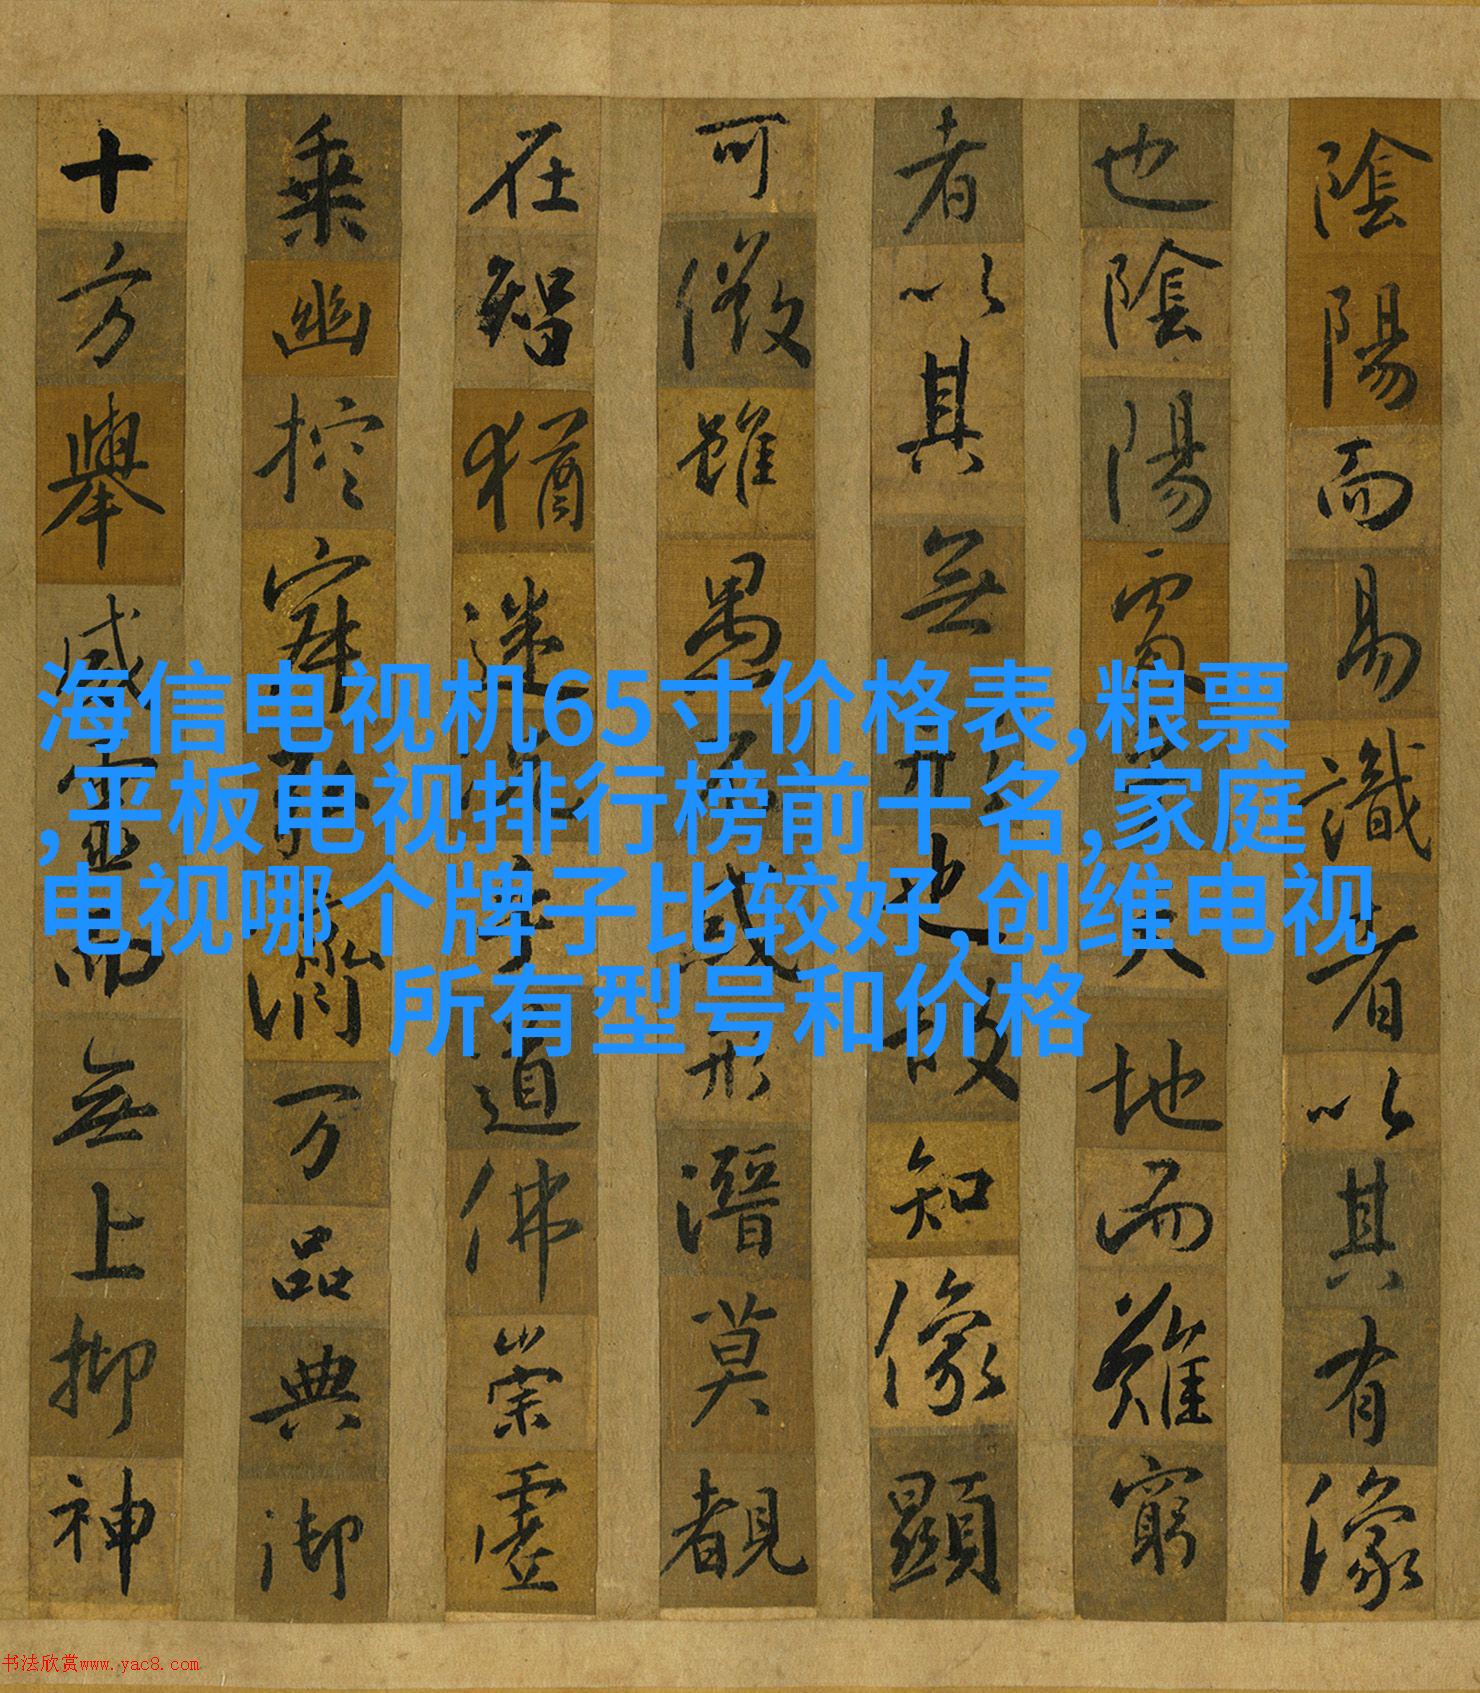 陰陽而易識者以其有像
也陰陽處乎天地而難窮
者以其無形也故知像顯
可徵雖愚不惑形潛莫覩
在智猶迷況乎佛道崇虛
乘幽控寂弘濟万品典御
十方舉威靈而無上抑神
海信电视机65寸价格表,粮票
,平板电视排行榜前十名,家庭
电视哪个牌子比较好,创维电视
所有型号和价格
书法欣赏www.yac8.com